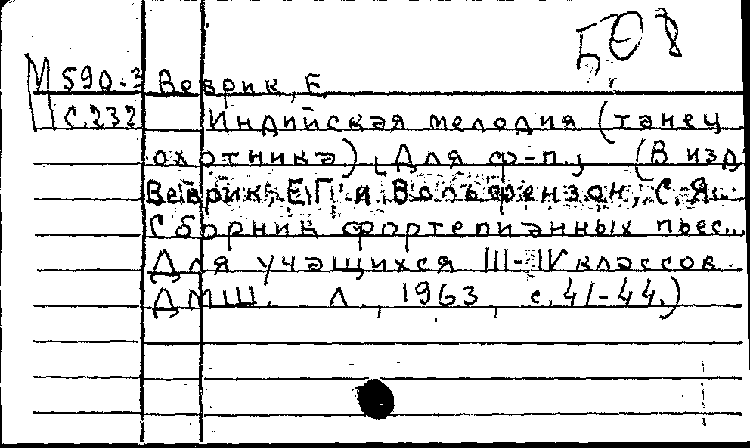 БО8
М 590-3 Веврик, Е
С.232 Индийская мелодия (танец
охотника) [Для ф-п.] (В изд.
Веврик, Е.П. и Вольфензон, С.Я.
Сборник фортепианных пьес...
Для учащихся III-IV классов
ДМШ. Л., 1963, с. 41-44.)